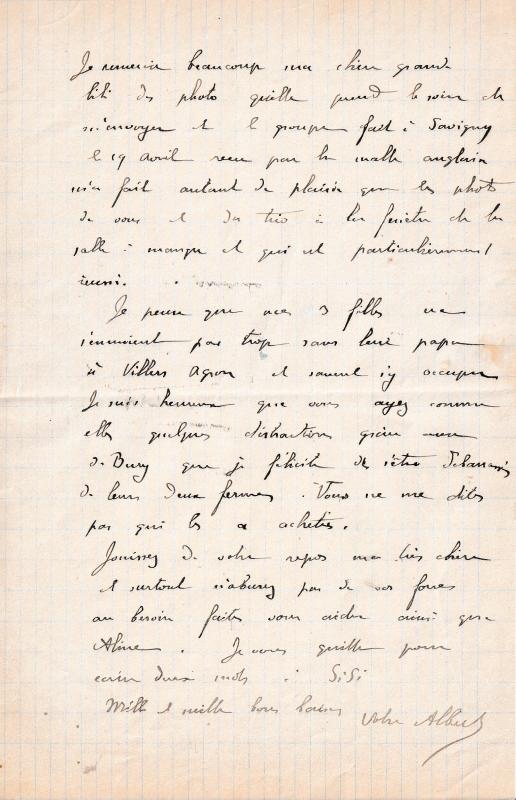 Je remercie beaucoup ma chère grande
titi des photo quelle prend le soin de
m'envoyer et le groupe fait à Savigny
le 19 avril reçu par la malle anglaise
m'a fait autant de plaisir que les photo
de vous et du trio à la fenêtre de la
salle à manger et qui est particulièrement
réussi.
Je pense que mes 3 filles ne
s'ennuient pas trop sans leur papa
à Villers Agron et savent s'y occuper
Je suis heureux que vous ayez comme
elles quelques distractions grâce aux
de Bury que je félicite de s'être débarrassés
de leurs deux fermes. Vous ne me dites
pas qui les a achetées.
Jouissez de votre repos ma très chère
et surtout n'abusez pas de vos forces
au besoin faites vous aider ainsi que
Aline. Je vous quitte pour
écrire deux mots à SiSi
Mille et mille bons baisers
votre Albert